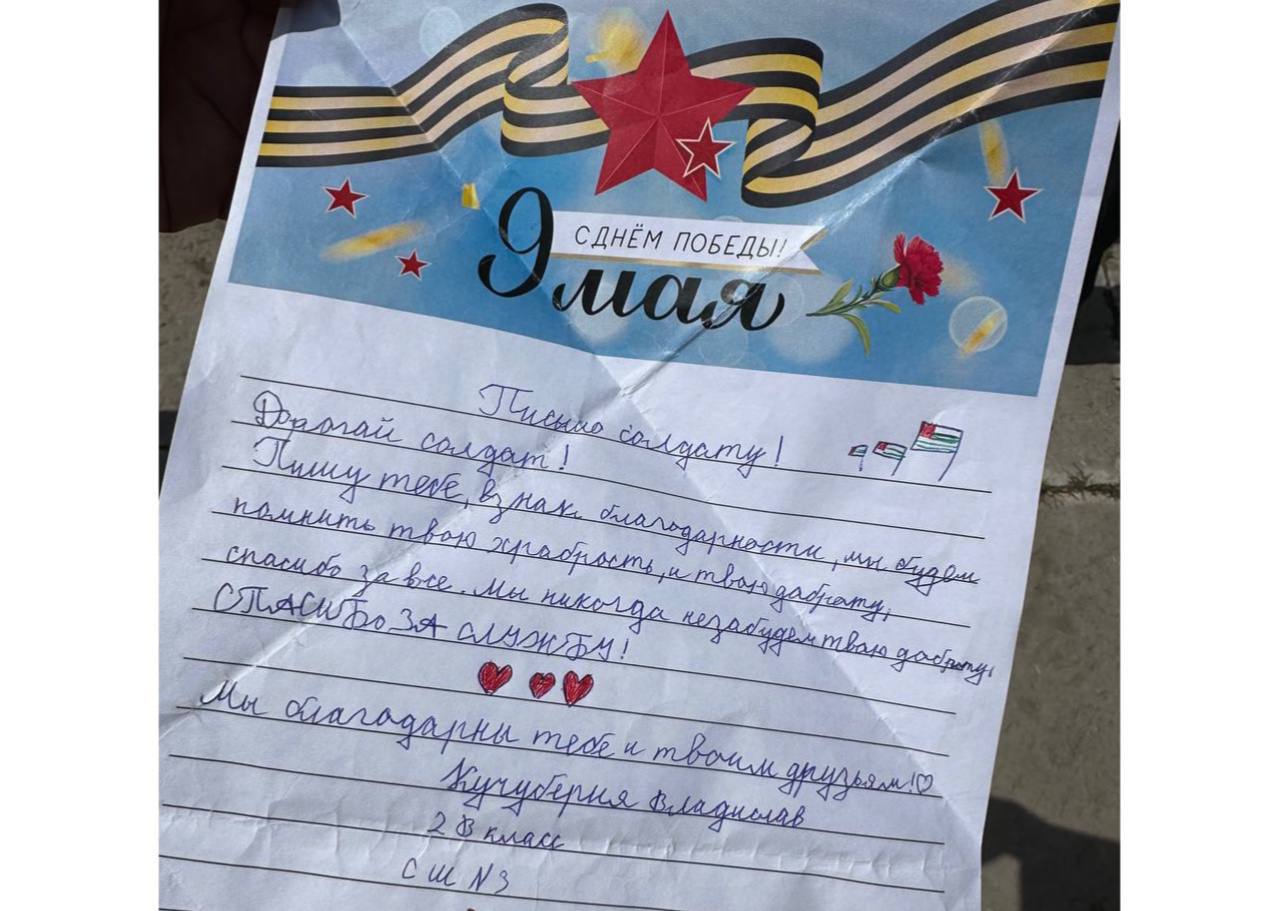 С ДНЁМ ПОБЕДЫ!
9 мая
Письмо солдату!
Дорагай солдат!
Пишу тебе, в знак благодарности, мы будем
помнить твою храбрость, и твою дабрату,
спасибо за все. Мы никогда незабудем тваю дабрату,
СПАСИБО ЗА СЛУЖБУ!
Мы благодарны тебе и твоим друзьям!
Кучуберия Владислав
2 В класс
СШ N3